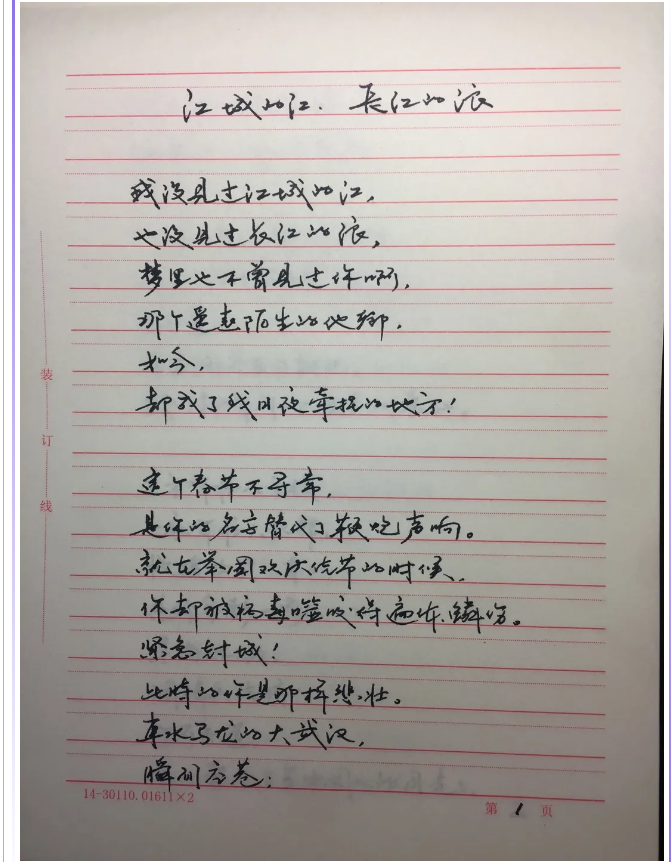 江城的江、長江的浪
我没见过江城的江，
也没见过长江的浪，
梦里也不曾见过你啊，
那个遥远陌生的他鄉。
如今，
却成了我日夜牵挂的地方！
这个春节不寻常，
是你的名字替代了鞭炮声响。
就在举國欢庆佳节的时候，
你却被病毒噬咬得遍体鳞伤。
紧急封城！
此時的你是那样悲壮。
车水马龙的大武汉，
瞬间空巷；
装
订
线
14-30110.01611×2
第 1 页